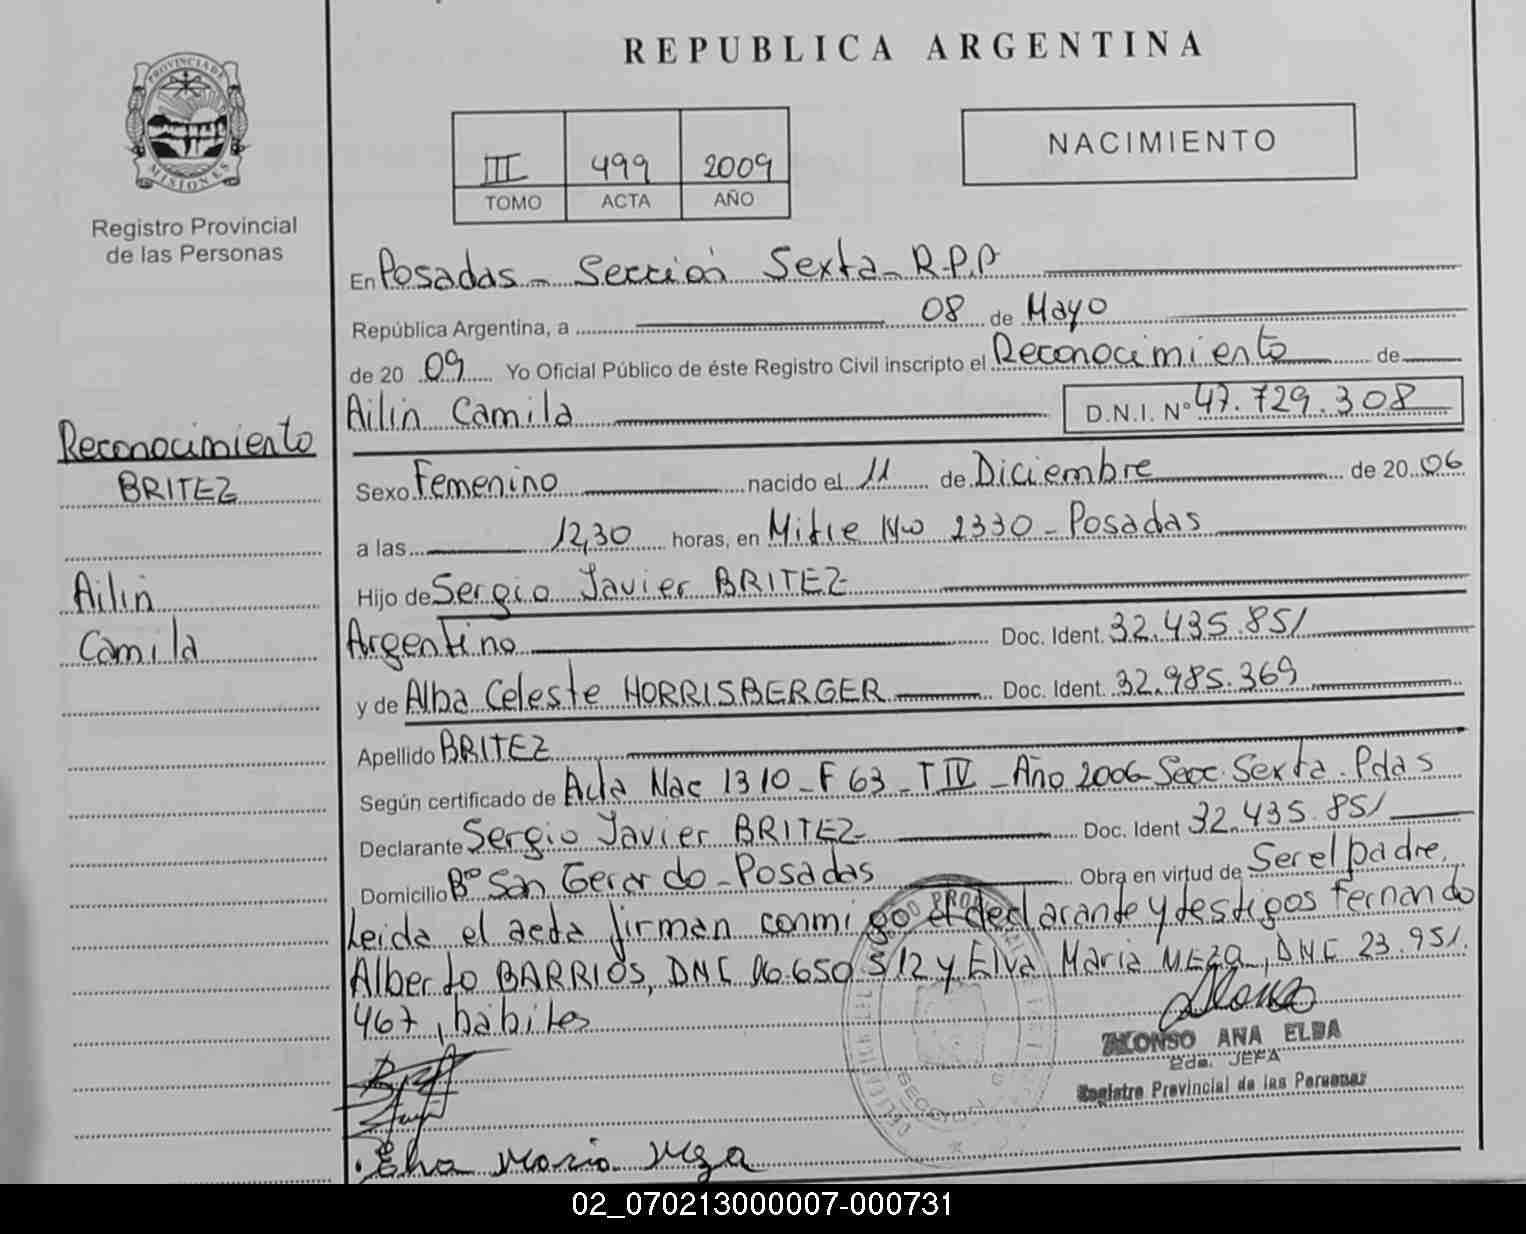 REPUBLICA ARGENTINA
PROVINCIA DE
MISIONES
Registro Provincial
de las Personas
III 499 2009
TOMO ACTA AÑO
NACIMIENTO
En Posadas - Sección Sexta - R.P.P
República Argentina, a 08 de Mayo
de 20 09 Yo Oficial Público de éste Registro Civil inscripto el Reconocimiento de
Ailin Camila D.N.I. Nº 47.729.308
Reconocimiento
BRITEZ
Ailin
Camila
Sexo Femenino nacido el 11 de Diciembre de 20 06
a las 12,30 horas, en Mitre Nº 2330 - Posadas
Hijo de Sergio Javier BRITEZ
Argentino Doc. Ident. 32.435.851
y de Alba Celeste HORRISBERGER Doc. Ident. 32.985.369
Apellido BRITEZ
Según certificado de Acta Nac 1310 - F 63 - T IV - Año 2006 - Secc. Sexta - Pdas
Declarante Sergio Javier BRITEZ Doc. Ident 32.435.851
Domicilio Bº San Gerardo - Posadas Obra en virtud de Ser el padre.
Leida el acta firman conmigo el declarante y testigos Fernando
Alberto BARRIOS, DNI 512 y Elva Maria MEZA, DNI 23.951.
467, habiles
ALONSO ANA ELBA
2da. JEFA
Registro Provincial de las Personas
Elva Maria Meza
02_070213000007-000731